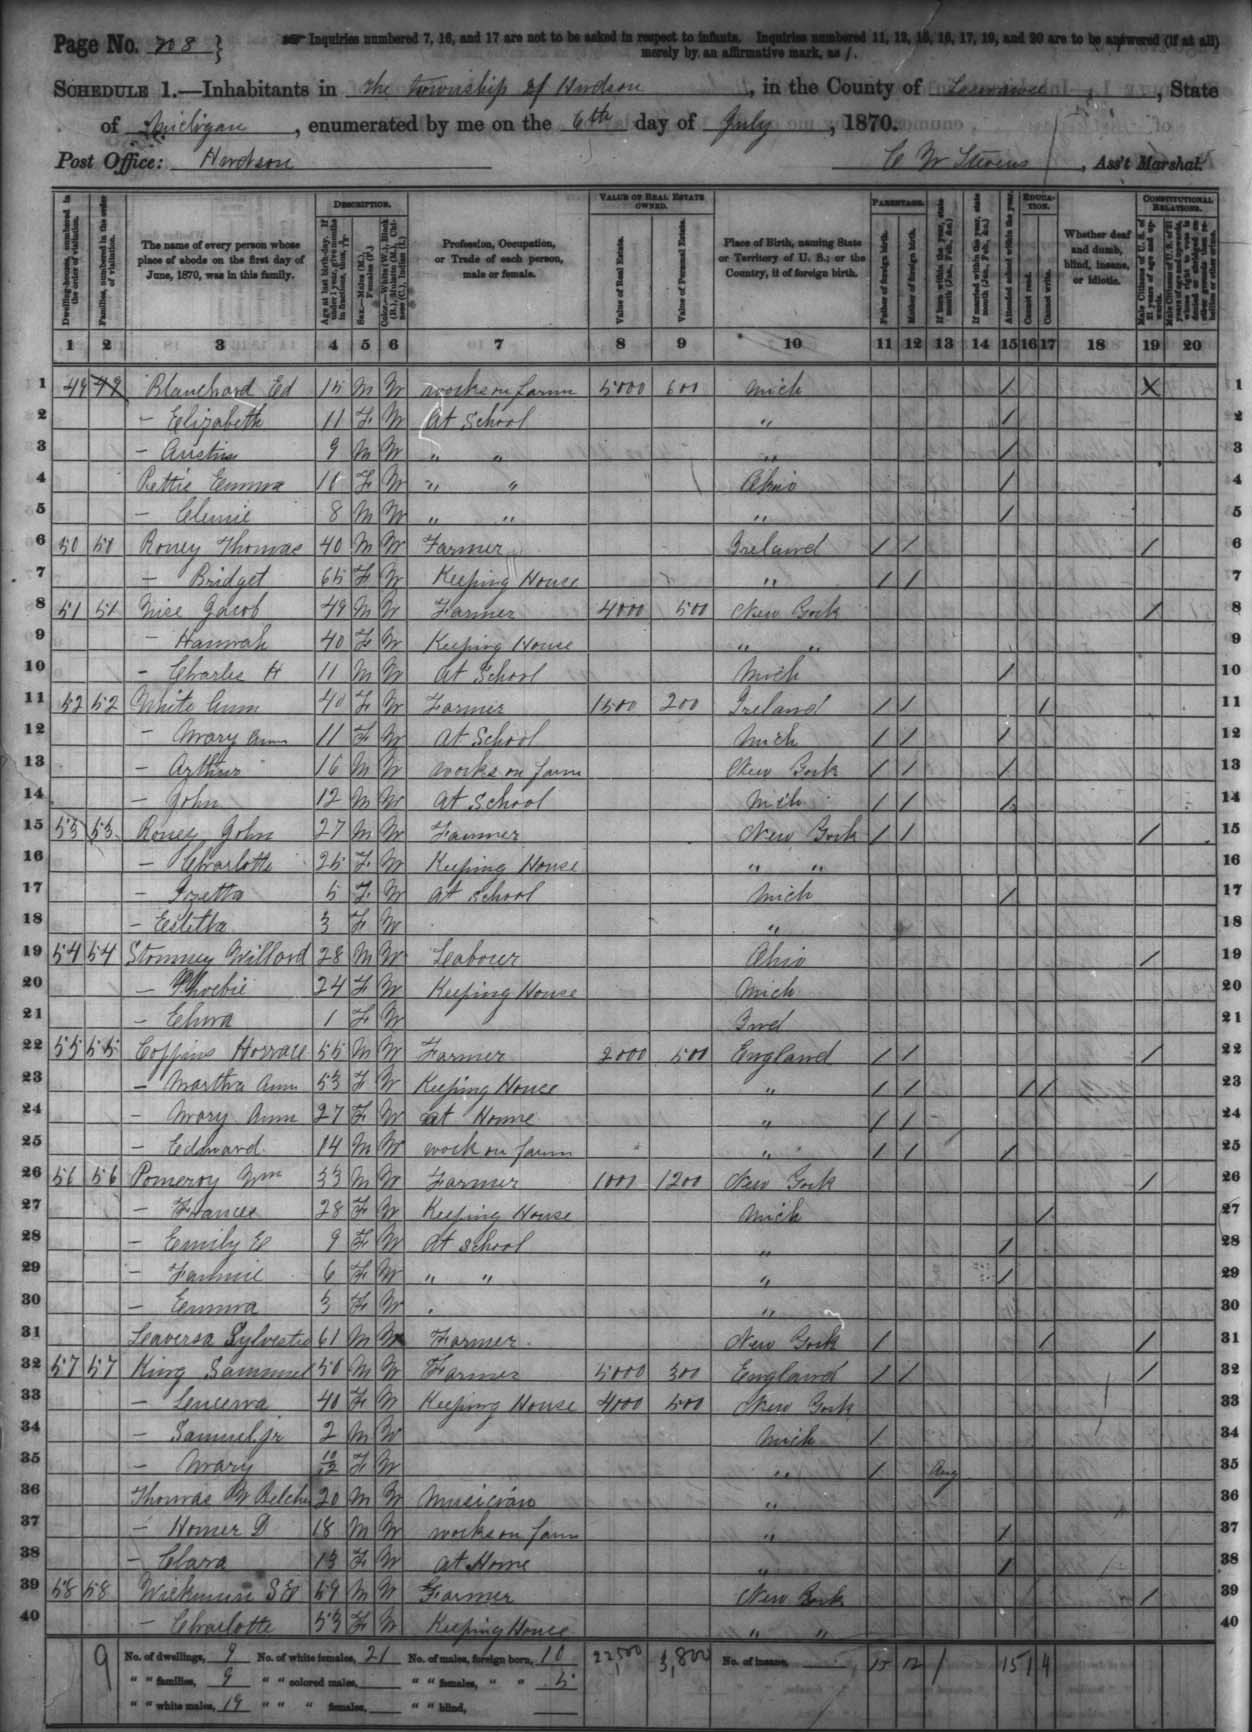 Page No. 208 }
Inquiries numbered 7, 16, and 17 are not to be asked in respect to infants. Inquiries numbered 11, 12, 15, 16, 17, 19, and 20 are to be answered (if at all)
merely by an affirmative mark, as /.
SCHEDULE 1.—Inhabitants in the township of Hudson, in the County of Lenawee, State
of Michigan, enumerated by me on the 6th day of July, 1870.
Post Office: Hudson C W Stevens, Ass't Marshal.
Dwelling-houses, numbered in the order of visitation.
Families, numbered in the order of visitation.
The name of every person whose place of abode on the first day of June, 1870, was in this family.
DESCRIPTION.
Age at last birth-day. If under 1 year, give months in fractions, thus, 3/12
Sex.—Males (M.), Females (F.)
Color.—White (W.), Black (B.), Mulatto (M.), Chinese (C.), Indian (I.)
Profession, Occupation, or Trade of each person, male or female.
VALUE OF REAL ESTATE OWNED.
Value of Real Estate.
Value of Personal Estate.
Place of Birth, naming State or Territory of U. S.; or the Country, if of foreign birth.
PARENTAGE.
Father of foreign birth.
Mother of foreign birth.
If born within the year, state month (Jan., Feb., &c.)
If married within the year, state month (Jan., Feb., &c.)
EDUCATION.
Attended school within the year.
Cannot read.
Cannot write.
Whether deaf and dumb, blind, insane, or idiotic.
CONSTITUTIONAL RELATIONS.
Male Citizens of U. S. of 21 years of age and upwards.
1 2 3 4 5 6 7 8 9 10 11 12 13 14 15 16 17 18 19 20
1 49 49 Blanchard Ed 15 M W works on farm 5000 600 Mich / X 1
2 – Elizabeth 11 F W At School " / 2
3 – Austin 9 M W " " " / 3
4 Pettie Emma 11 F W " " Ohio / 4
5 – Clemie 8 M W " " " / 5
6 50 50 Roney Thomas 40 M W Farmer Ireland / / / 6
7 – Bridget 65 F W Keeping House " / / 7
8 51 51 Nise Jacob 49 M W Farmer 4000 500 New York / 8
9 – Hannah 40 F W Keeping House " " 9
10 – Charles H 11 M W At School Mich / 10
11 52 52 White Ann 40 F W Farmer 1500 200 Ireland / / / 11
12 – Mary Ann 11 F W At School Mich / / / 12
13 – Arthur 16 M W works on farm New York / / / 13
14 – John 12 M W At School Mich / / / 14
15 53 53 Roney John 27 M W Farmer New York / / / 15
16 – Charlotte 25 F W Keeping House " " 16
17 – Izetta 5 F W At School Mich / 17
18 – Estetta 3 F W " 18
19 54 54 Willard 28 M W Labourer Ohio / 19
20 – Phoebie 24 F W Keeping House Mich 20
21 – 1 F W Ind 21
22 55 55 Coppins Horrace 55 M W Farmer 2000 500 England / / / 22
23 – Martha Ann 53 F W Keeping House " / / / / 23
24 – Mary Ann 27 F W At Home " / / 24
25 – Edward 14 M W work on farm " / / / 25
26 56 56 Pomeroy Wm 33 M W Farmer 1000 1200 New York / 26
27 – Frances 28 F W Keeping House Mich / 27
28 – Emily E 9 F W At School " / 28
29 – Fannie 6 F W " " " / 29
30 – Emma 3 F W " 30
31 Leaversa Sylvester 61 M W Farmer New York / / / 31
32 57 57 King Sammuel 50 M W Farmer 5000 300 England / / / 32
33 – Lucerva 40 F W Keeping House 4000 500 New York 33
34 – Samuel jr 2 M W Mich / 34
35 – Mary 10/12 F W " / Aug 35
36 Thomas W Belcher 20 M W Musician " 36
37 – Homer D 18 M W works on farm " / 37
38 – Clara 13 F W At Home " / 38
39 58 58 S E 59 M W Farmer New York / 39
40 – Charlotte 53 F W Keeping House " " 40
9 No. of dwellings, 9 No. of white females, 21 No. of males, foreign born, 10 22,500 3,800 No. of insane, 15 12 / 15 1 4
" " families, 9 " " colored males, " " females, " " 5
" " white males, 19 " " " females, " " blind,